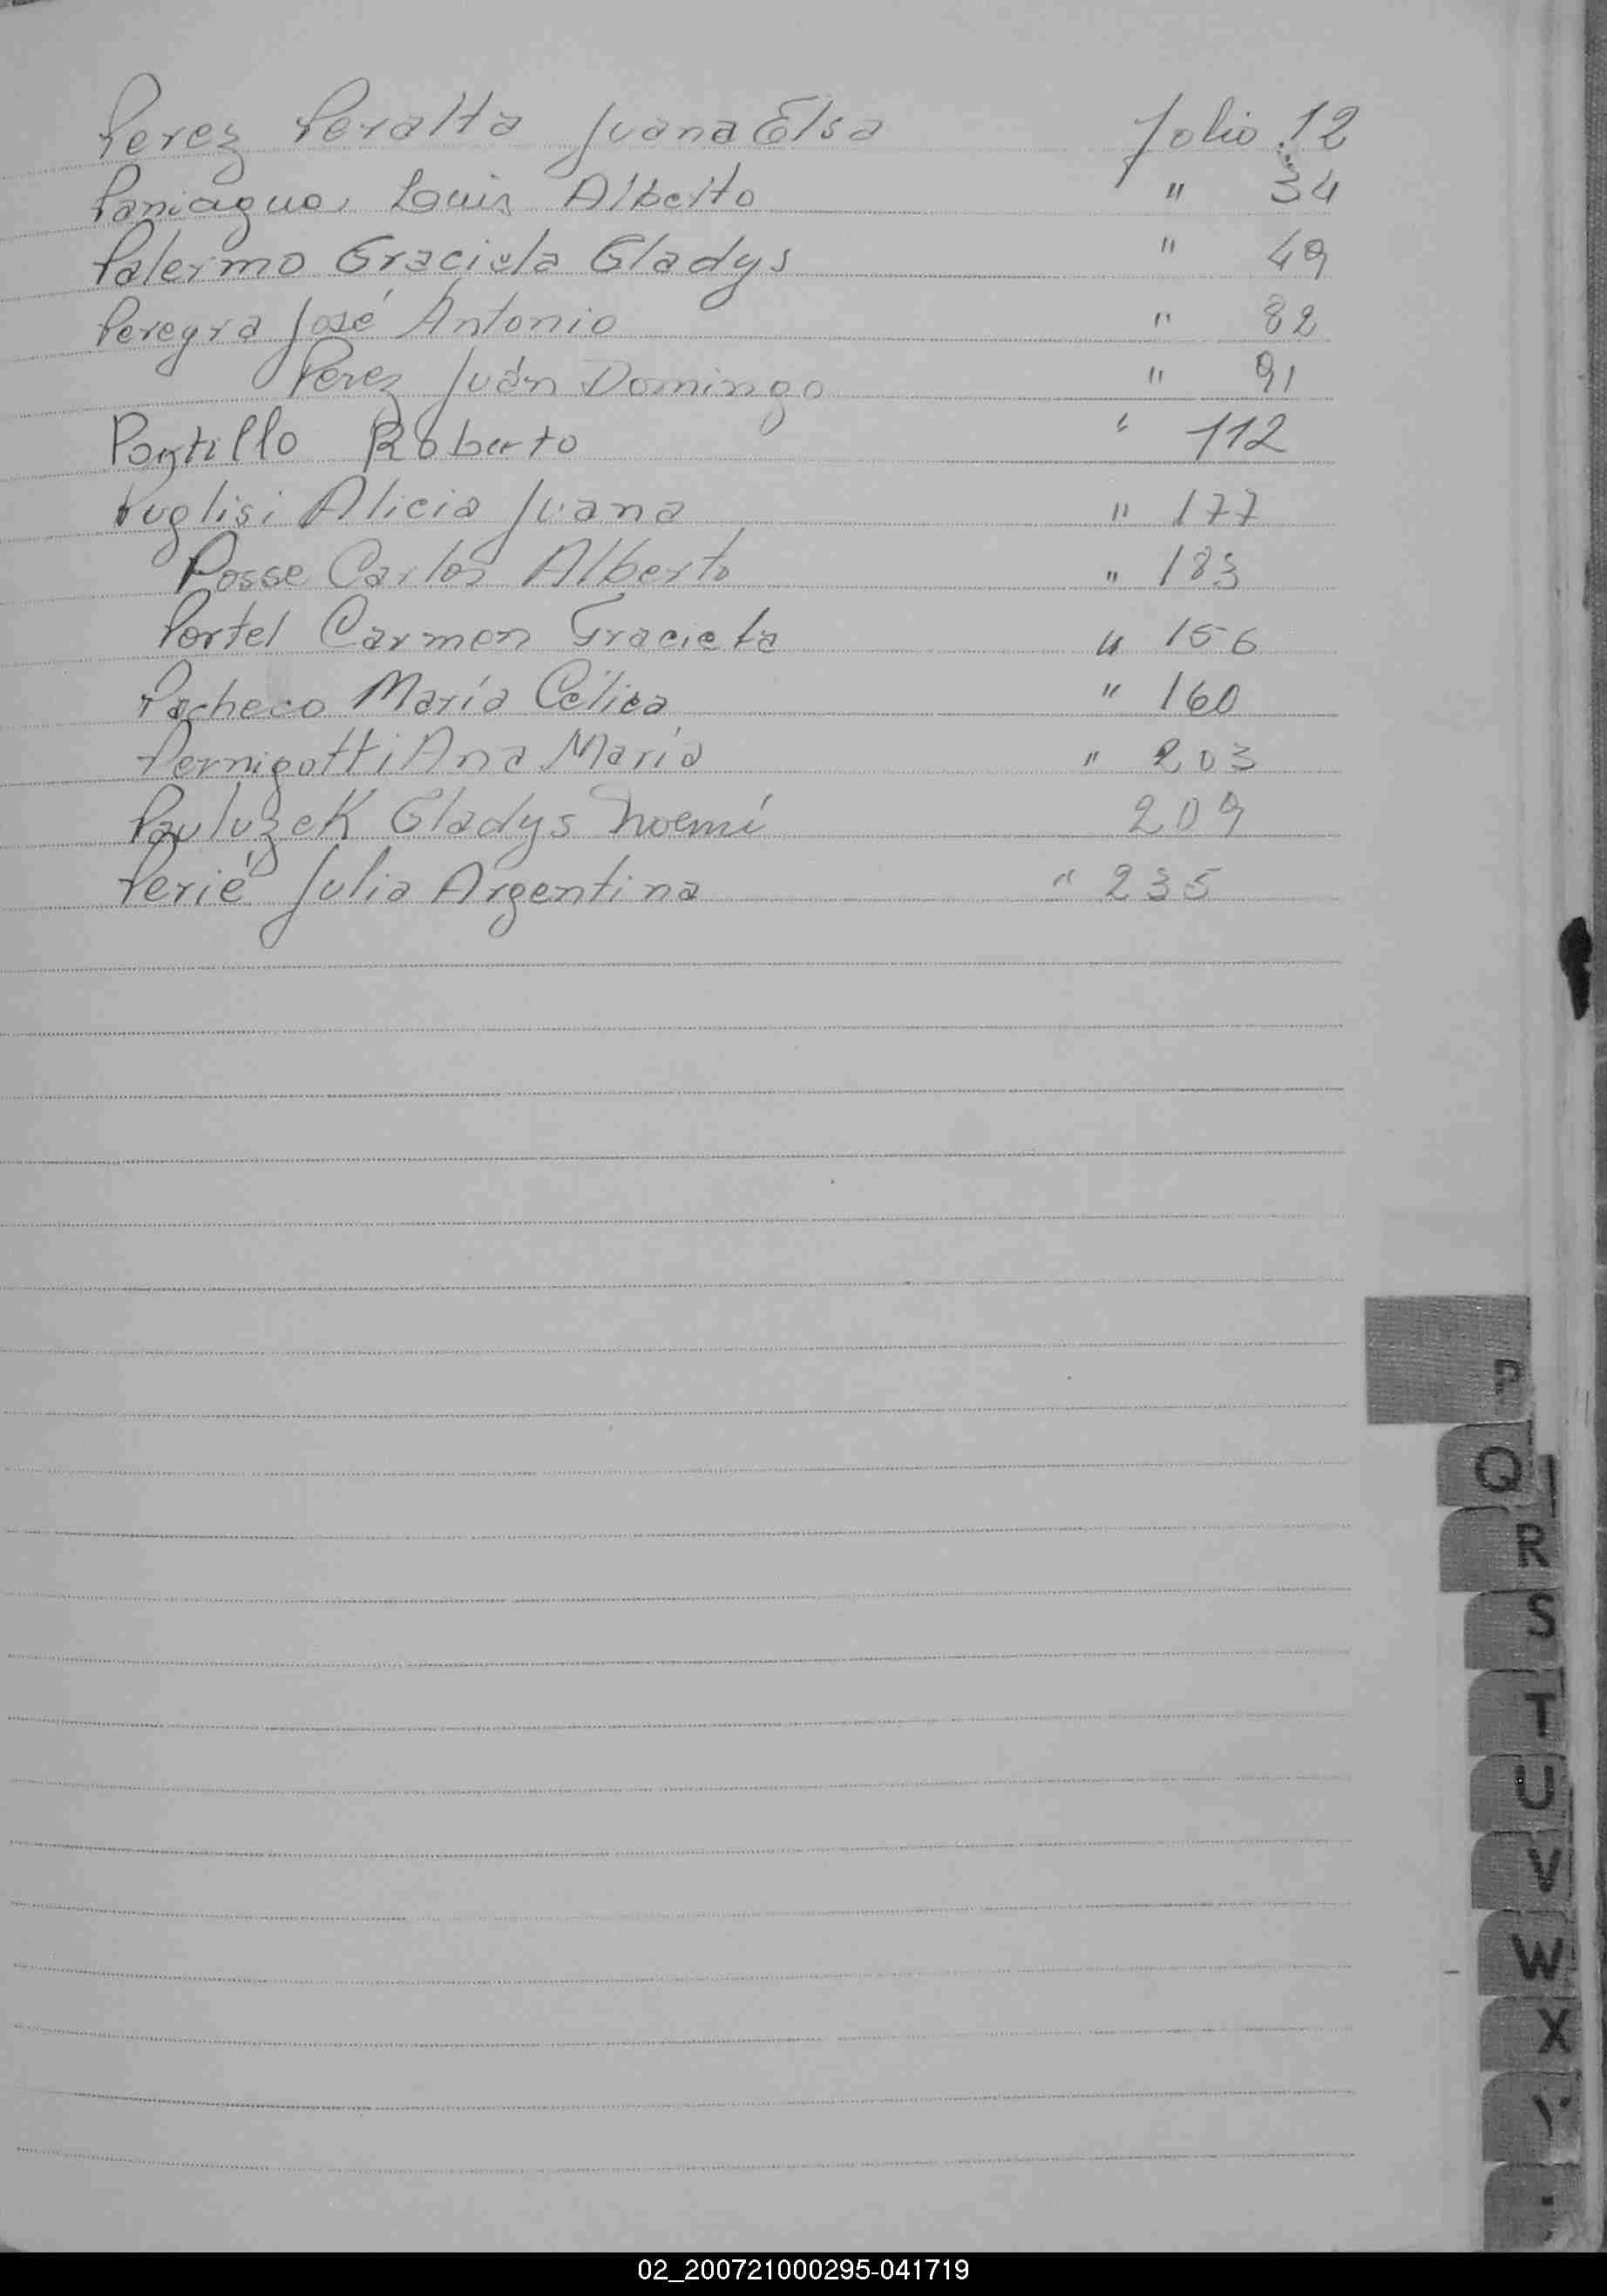 Perez Peralta Juana Elsa folio 12
Paniagua, Louis Alberto " 34
Palermo Graciela Gladys " 49
Pereyra José Antonio " 82
Perez Juán Domingo " 91
Portillo Roberto " 112
Puglisi Alicia Juana " 177
Posse Carlos Alberto " 183
Portel Carmen Graciela " 156
Pacheco María Célica " 160
Pernigotti Ana María " 203
Pauluzek Gladys Noemí 209
Perié Julia Argentina " 235
P
Q
R
S
T
U
V
W
X
Y
02_200721000295-041719